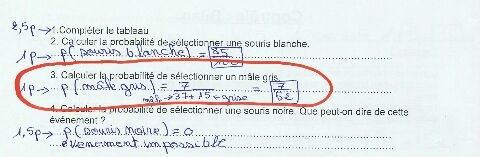 2,5p → 1. Compléter le tableau
2. Calculer la probabilité de sélectionner une souris blanche.
1p → p(souris blanche) = 85
3. Calculer la probabilité de sélectionner un mâle gris.
1p → p(mâle gris) = 7 = 7
mâle → 37 + 15 ← grise 52
4. Calculer la probabilité de sélectionner une souris noire. Que peut-on dire de cette
événement ?
1,5p → p(souris noire) = 0
évènement impossible